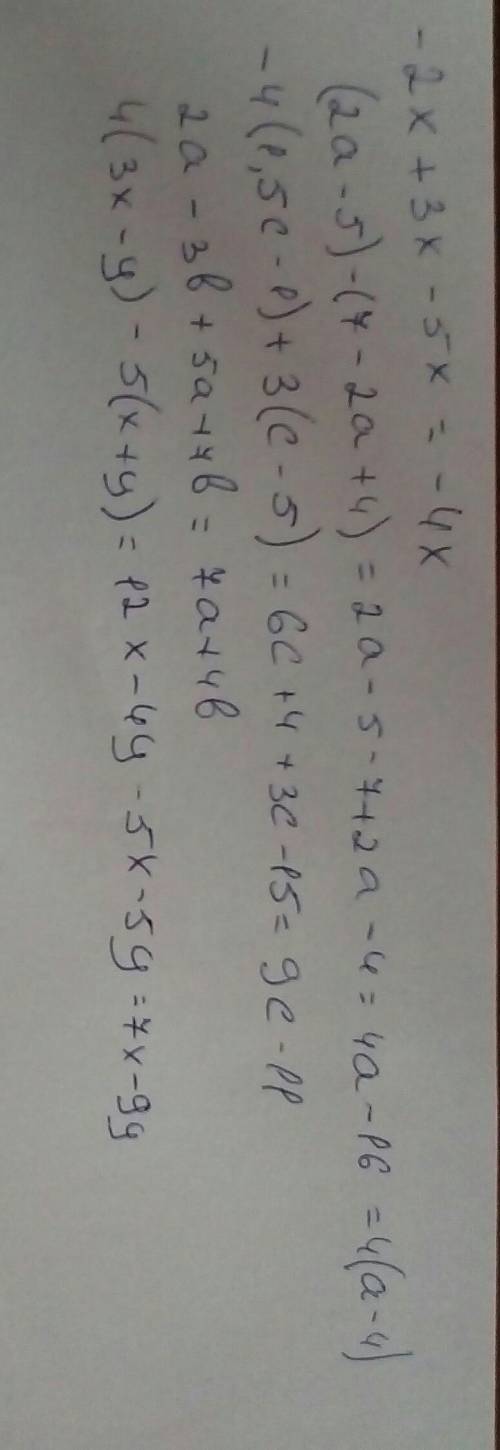 -2x + 3x - 5x = -4x
(2a - 5) - (7 - 2a + 4) = 2a - 5 - 7 + 2a - 4 = 4a - 16 = 4(a - 4)
-4(1,5c - 1) + 3(c - 5) = 6c + 4 + 3c - 15 = 9c - 11
2a - 3b + 5a + 7b = 7a + 4b
4(3x - y) - 5(x + y) = 12x - 4y - 5x - 5y = 7x - 9y